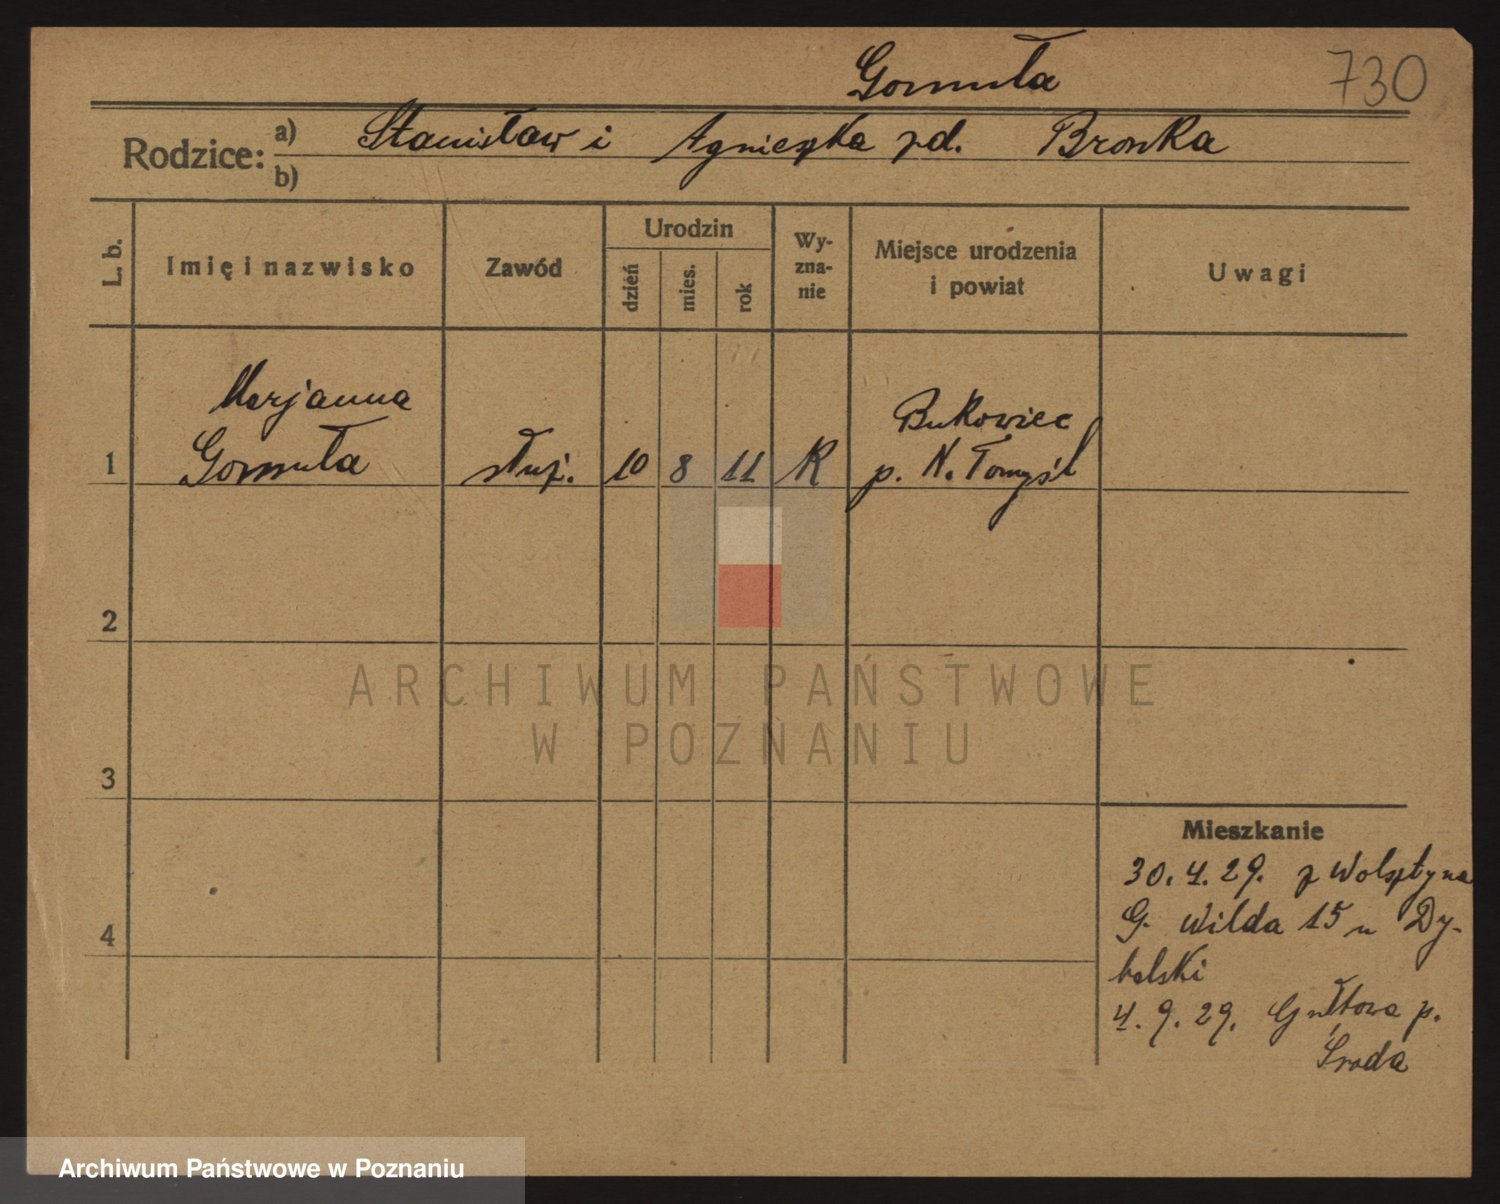 Gomuła
730
Rodzice:
a) Stanisław i Agnieszka zd. Bronka
b)
L. b.
Imię i nazwisko
Zawód
Urodzin
dzień
mies.
rok
Wy-
zna-
nie
Miejsce urodzenia
i powiat
Uwagi
Marjanna
1 Gomuła służ. 10 8 11 R
Bukowiec
p. N. Tomyśl
2
3
4
Mieszkanie
30.4.29. z Wolsztyna
G. Wilda 15 u Dy-
balski
4.9.29. Gułtowa p.
Środa
ARCHIWUM PAŃSTWOWE
W POZNANIU
Archiwum Państwowe w Poznaniu